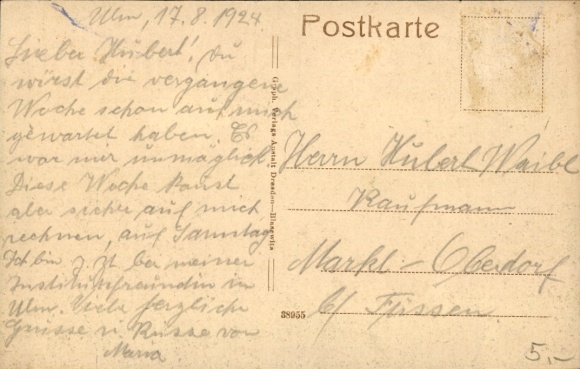 Ulm, 17.8.1924.
Lieber Hubert! du
wirst die vergangene
Woche schon auf mich
gewartet haben. Es
war mir unmöglich.
Diese Woche kanst
aber sicher auf mich
rechnen, auf Samstag.
Ich bin z. Zt. bei meiner
Institutsfreundin in
Ulm. Viele herzliche
Grüsse u. Küsse von
Maria
Graph. Verlags Anstalt Dresden-Blasewitz
38955
Postkarte
Herrn Hubert Waibl
Kaufmann
Markt-Oberdorf
b/ Füssen
5,-